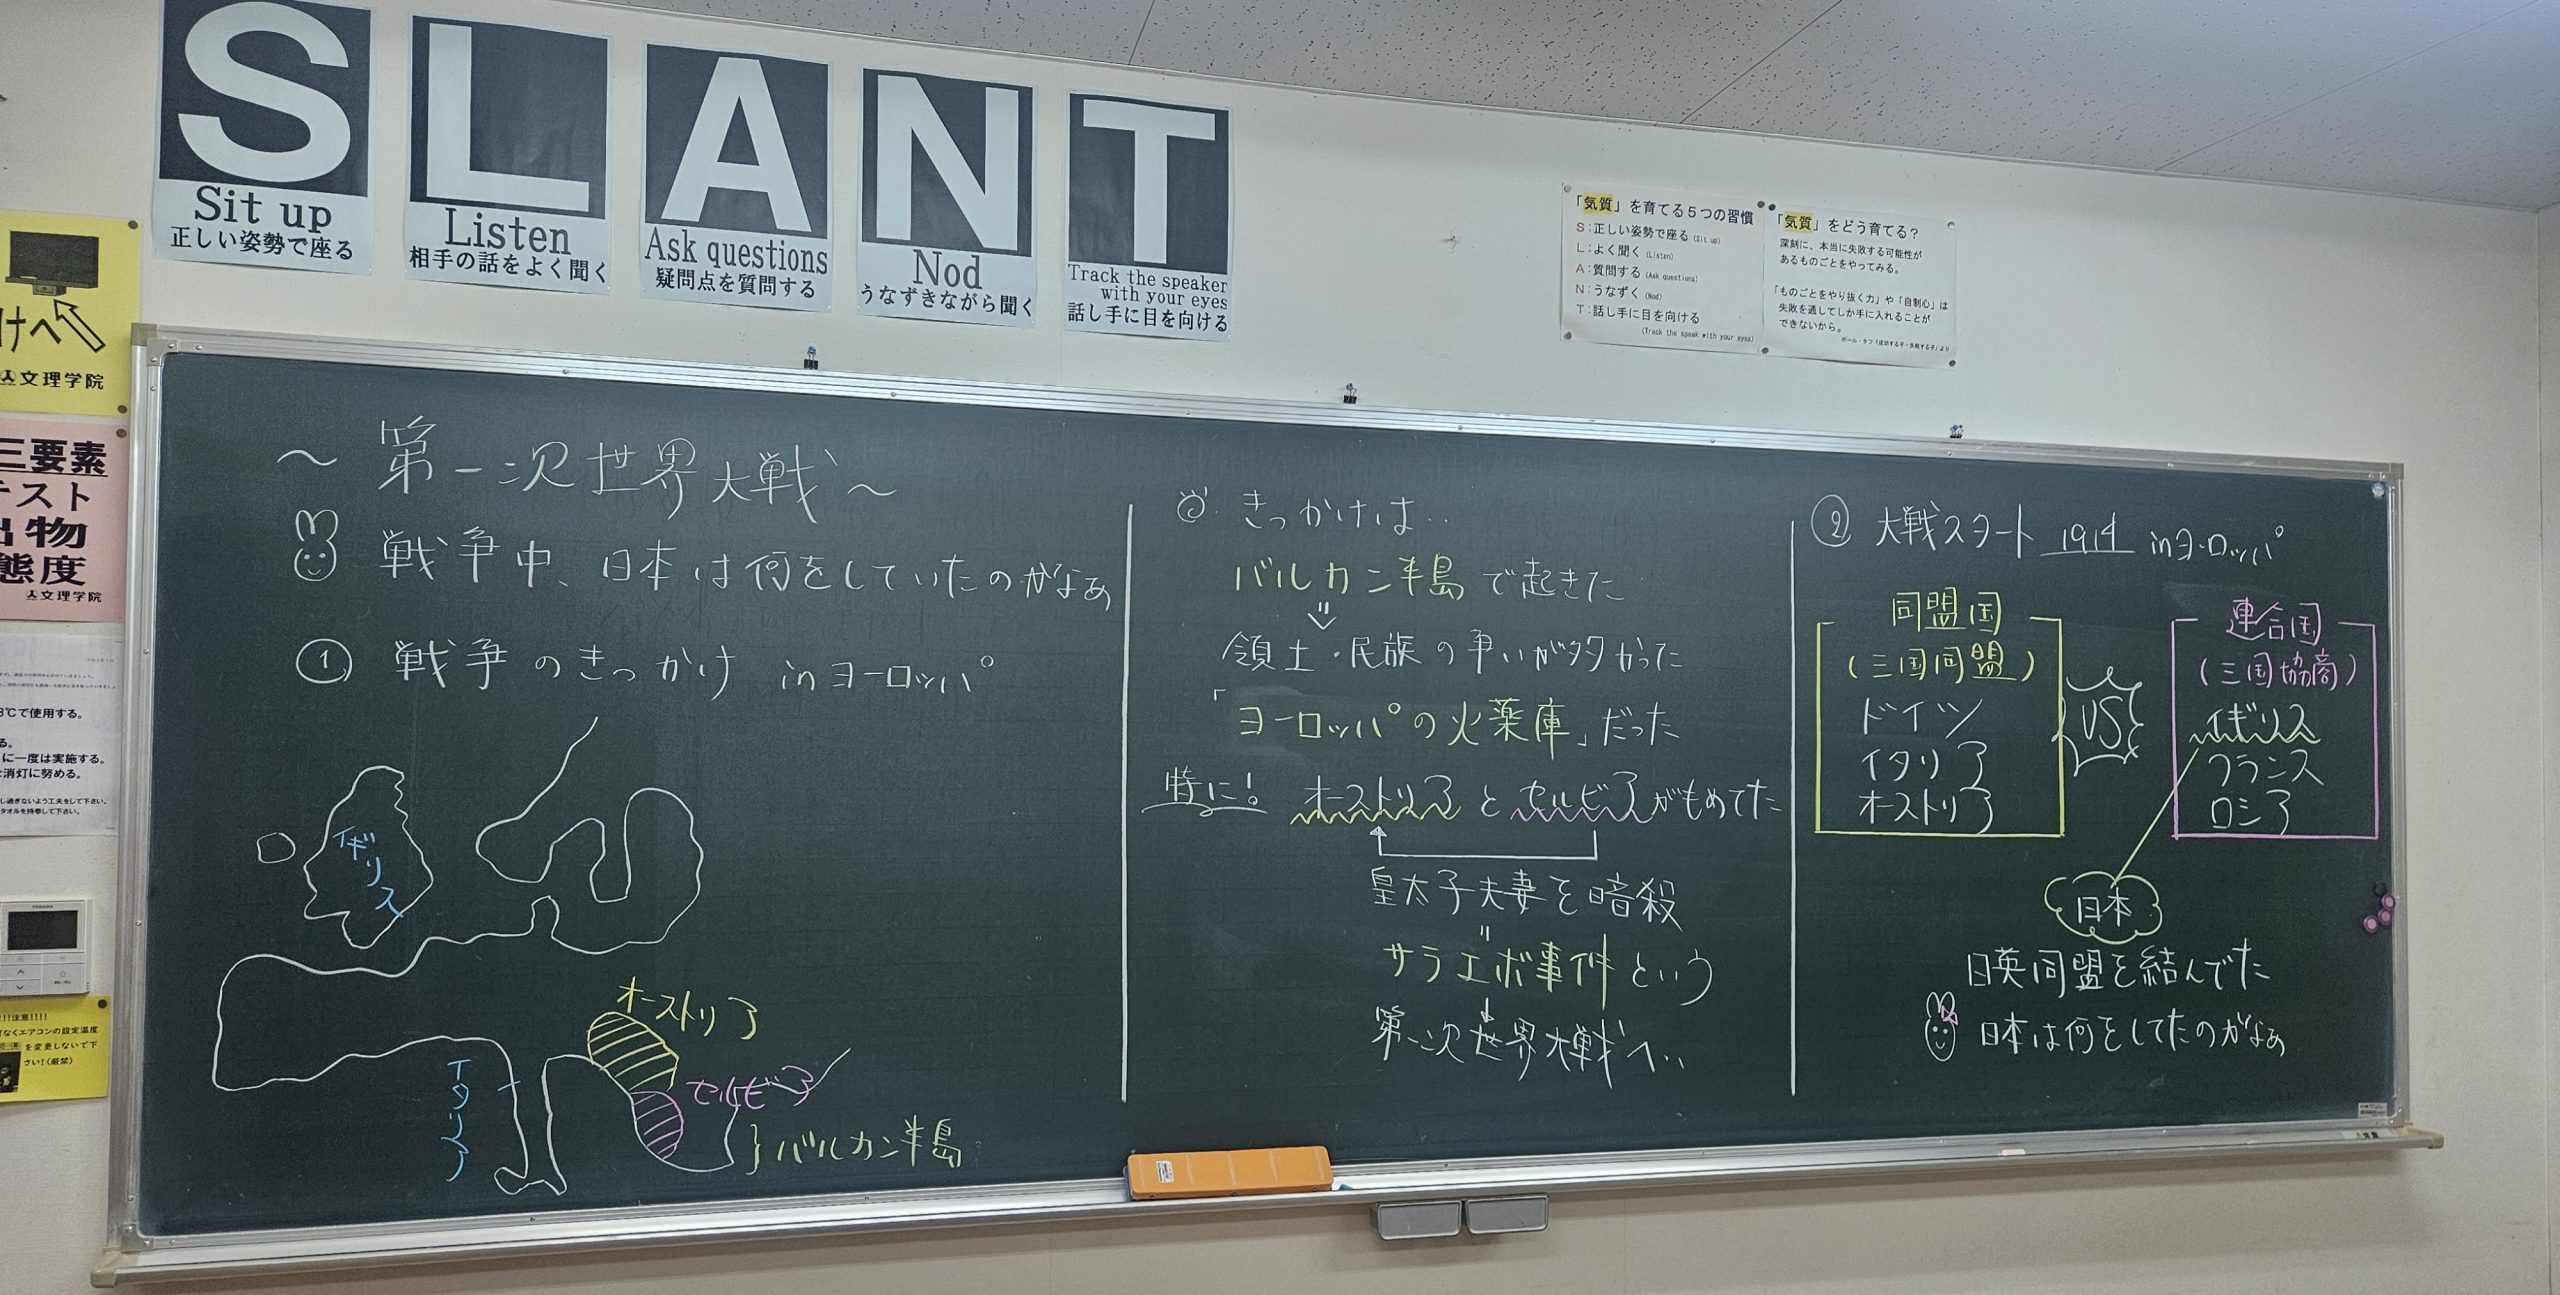 S
Sit up
正しい姿勢で座る
L
Listen
相手の話をよく聞く
A
Ask questions
疑問点を質問する
N
Nod
うなずきながら聞く
T
Track the speaker
with your eyes
話し手に目を向ける
「気質」を育てる5つの習慣
S:正しい姿勢で座る(Sit up)
L:よく聞く(Listen)
A:質問する(Ask questions)
N:うなずく(Nod)
T:話し手に目を向ける
(Track the speak with your eyes)
「気質」をどう育てる?
深刻に、本当に失敗する可能性が
あるものごとをやってみる。
「ものごとをやり抜く力」や「自制心」は
失敗を通してしか手に入れることが
できないから。
ポール・タフ「成功する子・失敗する子」より
けへ
文理学院
三要素
テスト
出物
態度
文理学院
8℃で使用する。
る。
に一度は実施する。
消灯に努める。
し過ぎないよう工夫をして下さい。
タオルを持参して下さい。
!!注意!!!!
なくエアコンの設定温度
を変更しないで下
さい!(厳禁)
~第一次世界大戦~
戦争中、日本は何をしていたのかなぁ
① 戦争のきっかけ inヨーロッパ
イギリス
オーストリア
イタリア
セルビア
}バルカン半島
きっかけは..
バルカン半島で起きた
領土・民族の争いが多かった
「ヨーロッパの火薬庫」だった
特に! オーストリアとセルビアがもめてた
皇太子夫妻を暗殺
〃
サラエボ事件という
↓
第一次世界大戦へ..
② 大戦スタート 1914 inヨーロッパ
同盟国
(三国同盟)
ドイツ
イタリア
オーストリア
VS
連合国
(三国協商)
イギリス
フランス
ロシア
日本
日英同盟を結んでた
日本は何をしてたのかなぁ